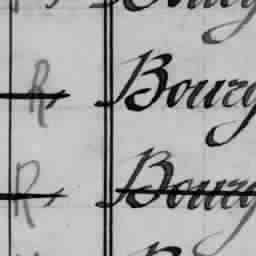 R Bourg
R Bourg